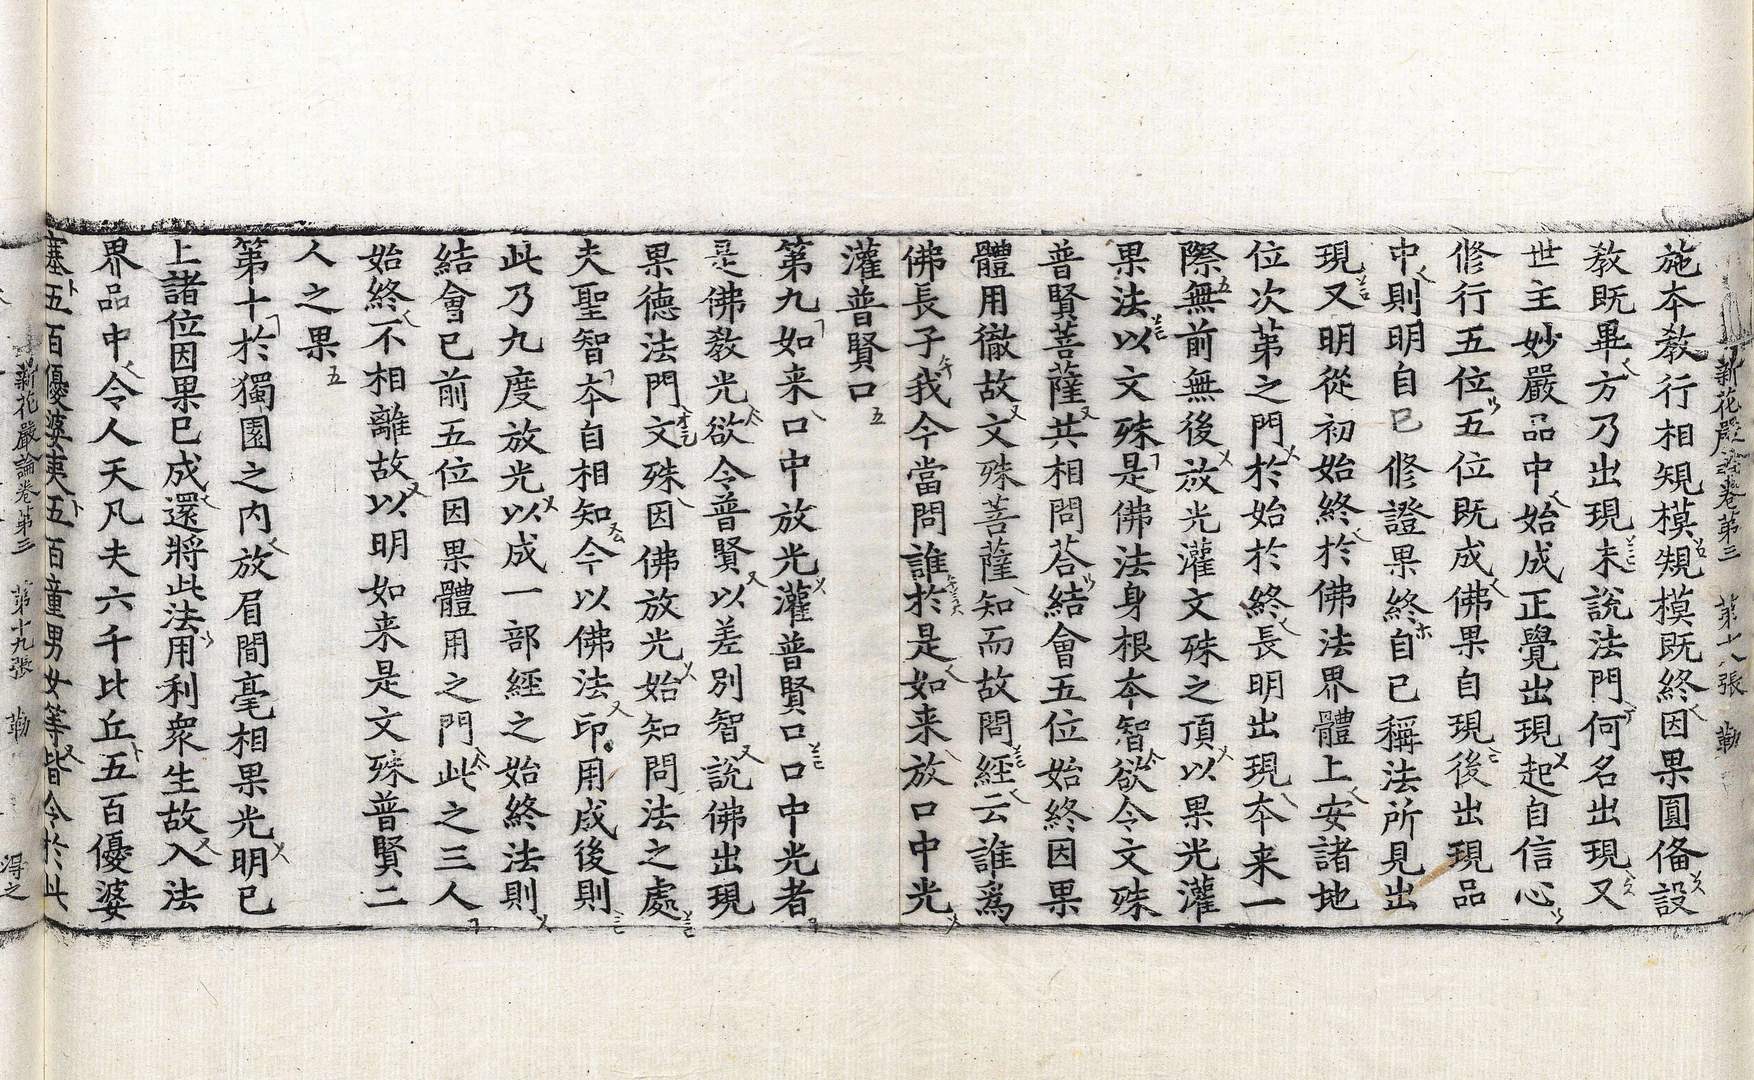 新花嚴論卷第三　第十八張　勒
施本敎行相䂓模䂓模既終因果圓俻設
敎既畢方乃出現未說法門何名出現又
世主妙嚴品中始成正覺出現起自信心
修行五位五位既成佛果自現後出現品
中則明自已修證果終自已稱法所見出
現又明從初始終於佛法界體上安諸地
位次第之門於始於終長明出現本来一
際無前無後放光灌文殊之頂以果光灌
果法以文殊是佛法身根本智欲令文殊
普賢菩薩共相問荅結會五位始終因果
體用徹故文殊菩薩知而故問經云誰爲
佛長子我今當問誰於是如来放口中光
灌普賢口
第九如来口中放光灌普賢口口中光者
是佛敎光欲令普賢以差別智說佛出現
果德法門文殊因佛放光始知問法之處
夫聖智本自相知今以佛法印用成後則
此乃九度放光以成一部經之始終法則
結會已前五位因果體用之門此之三人
始終不相離故以明如来是文殊普賢二
人之果
第十於獨園之內放眉間毫相果光明已
上諸位因果已成還將此法用利衆生故入法
界品中令人天凡夫六千比丘五百優婆
塞五百優婆夷五百童男女等皆令於此
新花嚴論卷第三　第十九張　勒　得之